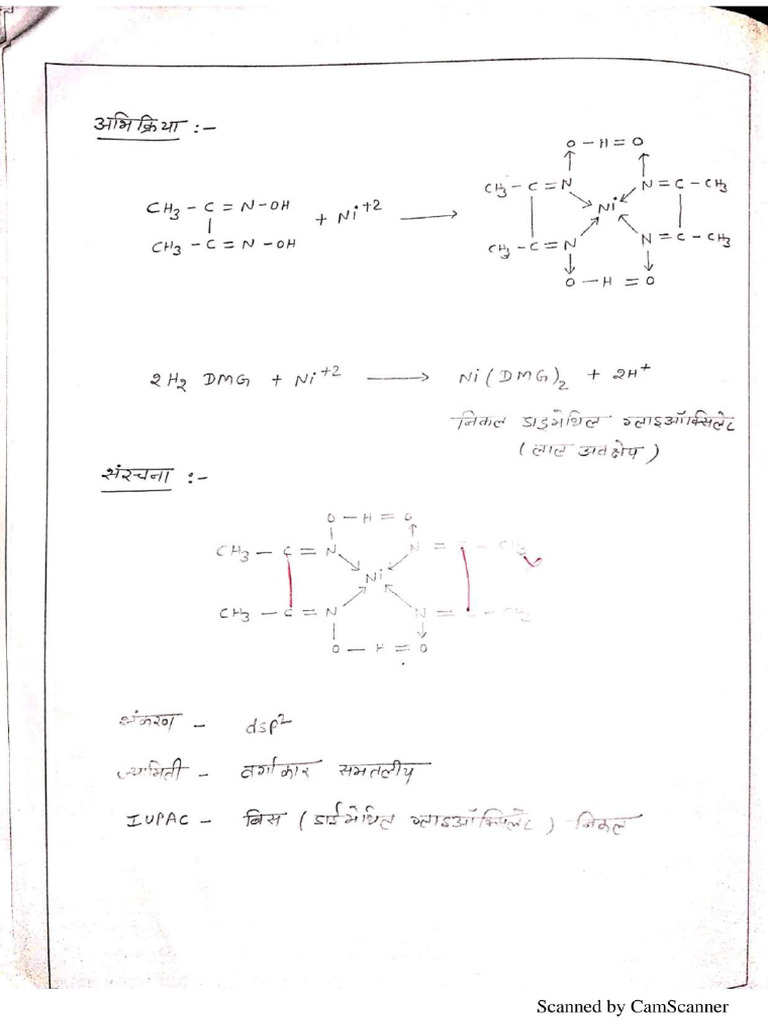 अभिक्रिया :-
O - H = O
CH3 - C = N N = C - CH3
CH3 - C = N - OH + Ni+2 ⟶ Ni
CH3 - C = N - OH
CH3 - C = N N = C - CH3
O - H = O
2H2 DMG + Ni+2 ⟶ Ni(DMG)2 + 2H+
निकल डाइमेथिल ग्लाइऑक्सिलेट
(लाल अवक्षेप)
संरचना :-
O - H = O
CH3 - C = N N = C - CH3
Ni
CH3 - C = N N = C - CH3
O - H = O
संकरण - dsp2
ज्यामिती - वर्गाकार समतलीय
IUPAC - बिस (डाईमेथिल ग्लाइऑक्सिलेट) निकल
Scanned by CamScanner